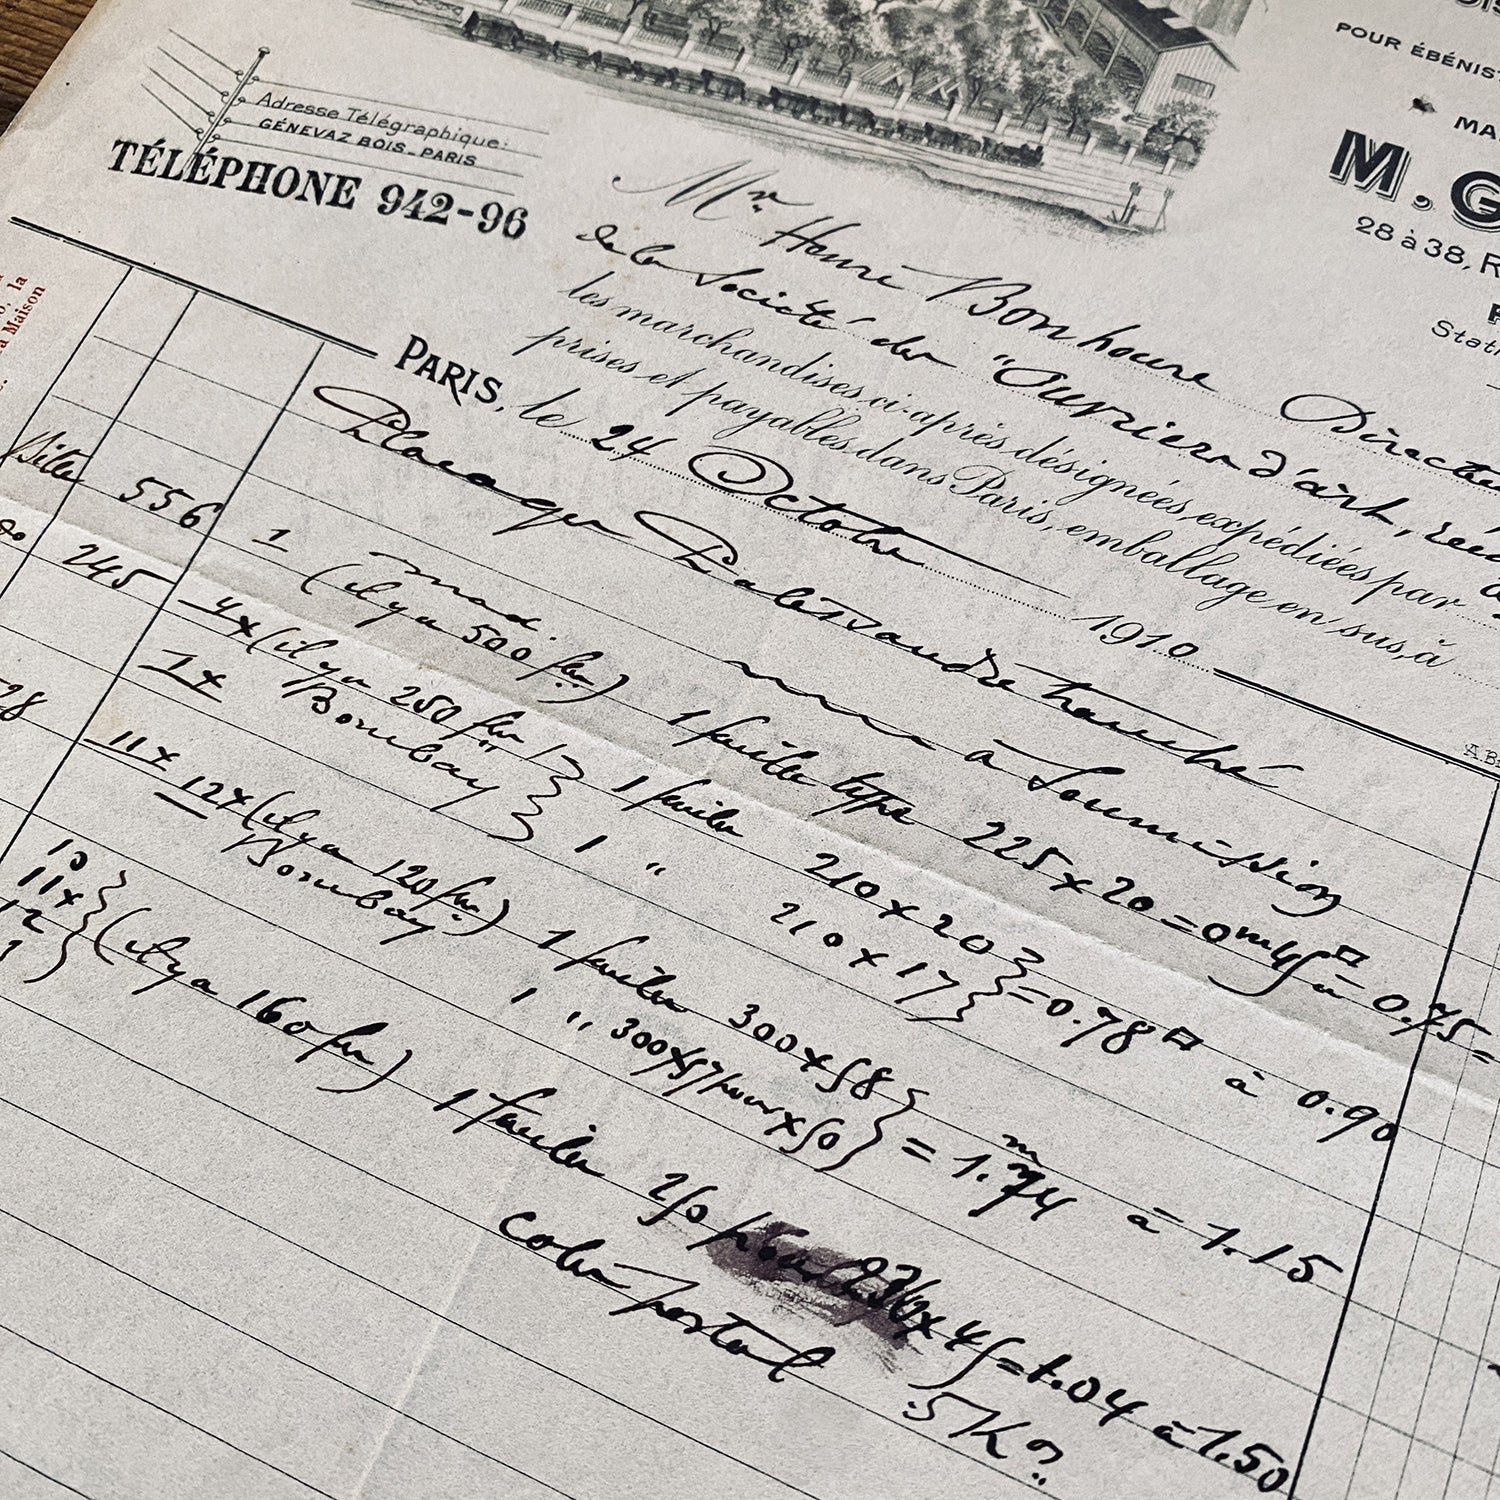 POUR ÉBÉNIST
MA
M. G
28 à 38, R
Adresse Télégraphique:
GÉNEVAZ BOIS-PARIS
TÉLÉPHONE 942-96
la
Maison
Mr. Henri Bonheure Directeur
de la Société des "Ouvriers d'art,
les marchandises ci-après désignées, expédiées par
prises et payables dans Paris, emballage en sus, à
PARIS, le 24 Octobre 1910
Placage Palissandre tranché
à Soumission
556 1 mad. (il y a 500 flles) 1 feuille type 225 x 20 = 0m45 à 0.75 =
245 4x (il y a 250 flles) 1 feuille 210 x 20 } = 0.78 à 0.90
1x Bombay } 1 " 210 x 17 }
28 11x 12x (il y a 120 flles) 1 feuille 300 x 58 } = 1.m74 à 1.15
Bombay 1 " 300 x 57 pour x 50 }
10
11x
12
1
} (il y a 160 flles) 1 feuille 250 pour 236 x 45 = 1.04 à 1.50
colis postal 5 K?